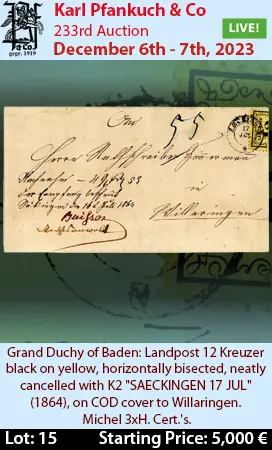 Karl Pfankuch & Co
233rd Auction
LIVE!
December 6th - 7th, 2023
& Co.
gegr. 1919
An
55
Herrn Rathschreiber
in
Willaringen
49 53
Säckingen 1864
Buisson
Rechtsanwalt
Grand Duchy of Baden: Landpost 12 Kreuzer
black on yellow, horizontally bisected, neatly
cancelled with K2 "SAECKINGEN 17 JUL"
(1864), on COD cover to Willaringen.
Michel 3xH. Cert.'s.
Lot: 15
Starting Price: 5,000 €